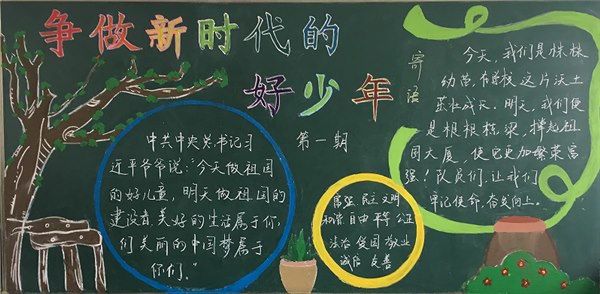 争做新时代的
好少年
第一期
中共中央总书记习
近平爷爷说:“今天做祖国
的好儿童,明天做祖国的
建设者,美好的生活属于你
们,美丽的中国梦属于
你们。”
富强 民主 文明
和谐 自由 平等 公正
法治 爱国 敬业
诚信 友善
寄语
今天,我们是株株
幼苗,在学校这片沃土
茁壮成长。明天,我们便
是根根栋梁,撑起祖
国大厦,使它更加繁荣富
强!队员们,让我们
牢记使命,奋发向上。